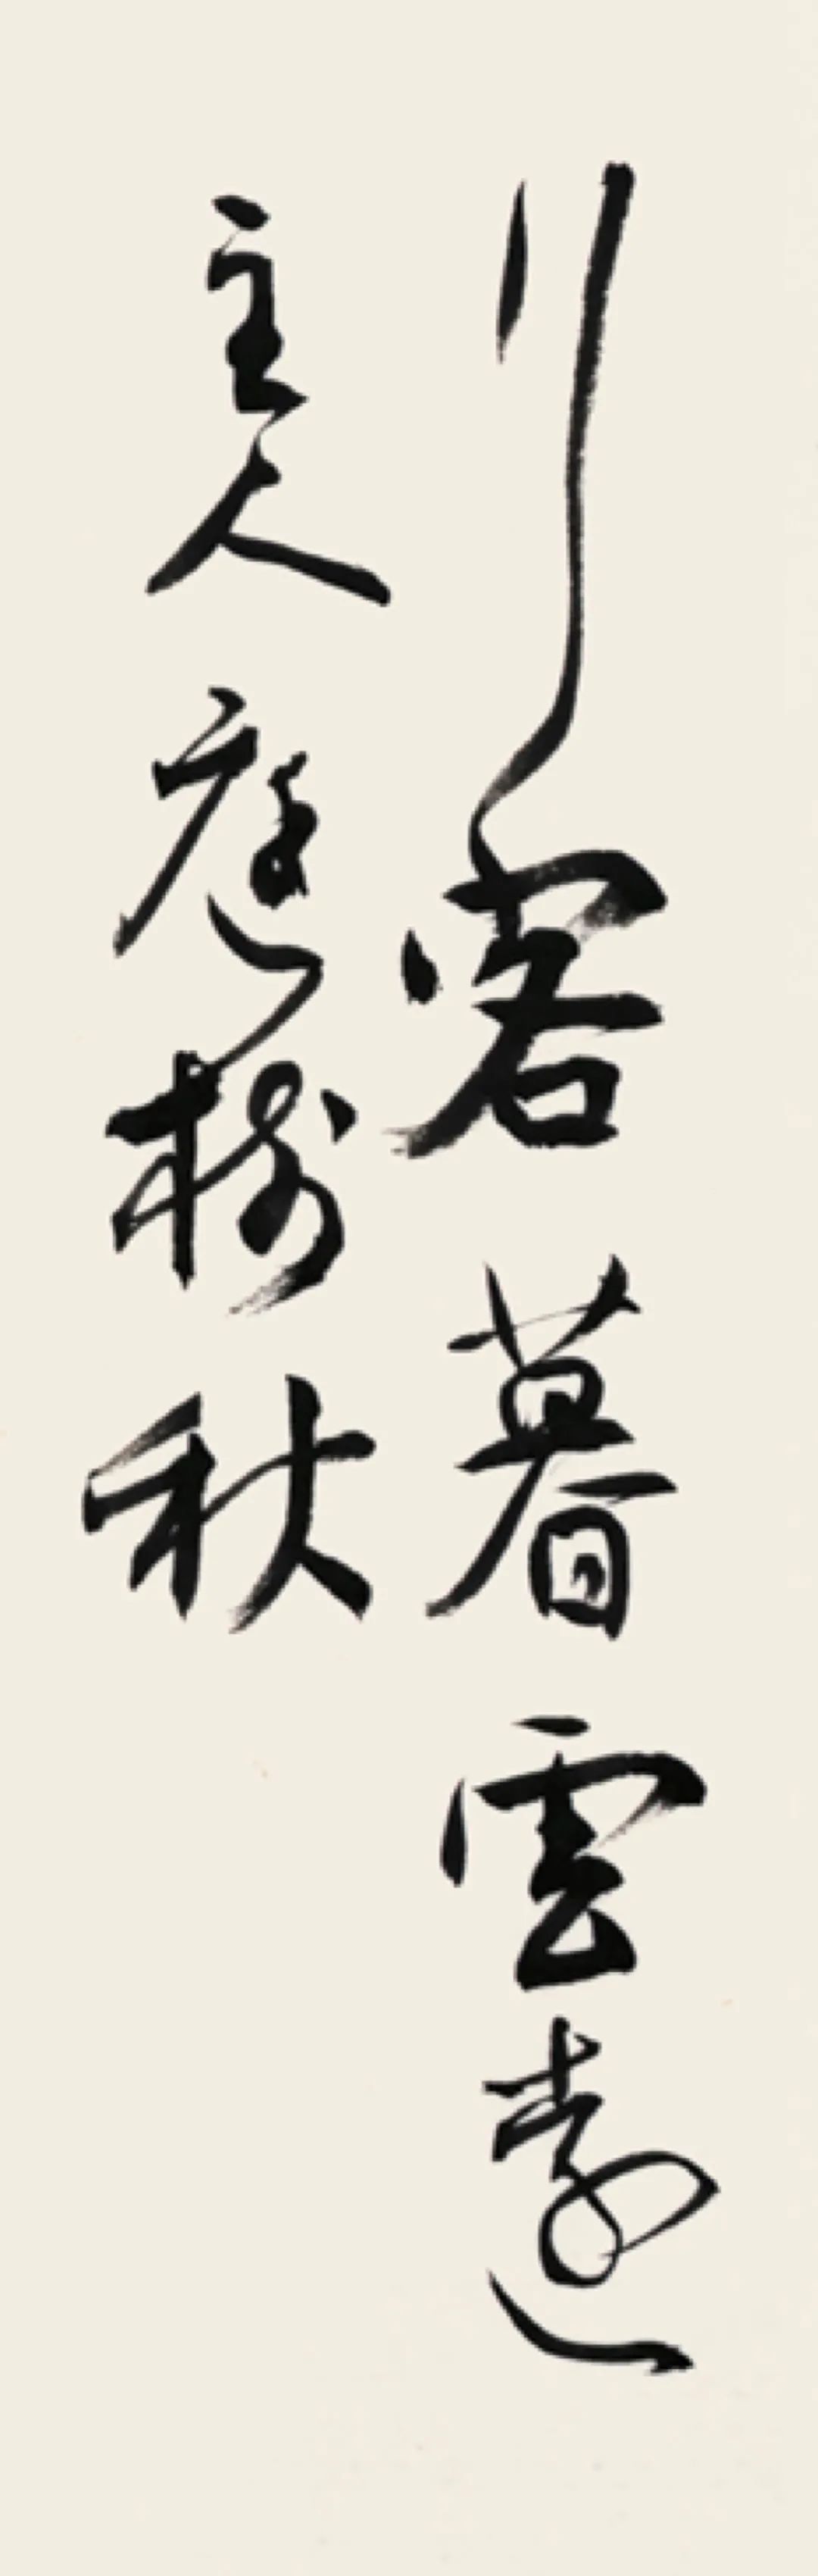 行客暮雲遠
主人庭樹秋